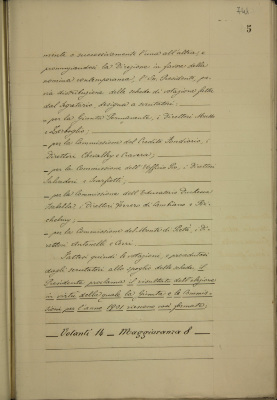 5
mente e successivamente l'una all'altra; e
pronunziandosi la Direzione in favore della
nomina contemporanea, l'Ill. Presidente, pre-
via distribuzione delle schede di votazione fatta
dal Segretario, designa a scrutatori:
– per la Giunta Permanente, i Direttori
e
– per la Commissione del Credito Fondiario, i
Direttori e
– per la Commissione dell'Ufficio Pio, i Direttori
e Scarfiotti;
– per la Commissione dell'Educatorio Duchessa
Isabella, i Direttori Ferrero di Cambiano e
– per la Commissione del Monte di Pietà, i Di-
rettori Antonelli e
Fattesi quindi le votazioni, e proceduto
dagli scrutatori allo spoglio delle schede, il
Presidente proclama il risultato dell'elezione
in virtù della quale la Giunta e le Commis-
sioni per l'anno 1901 vennero così formate:
Votanti 14 — Maggioranza 8